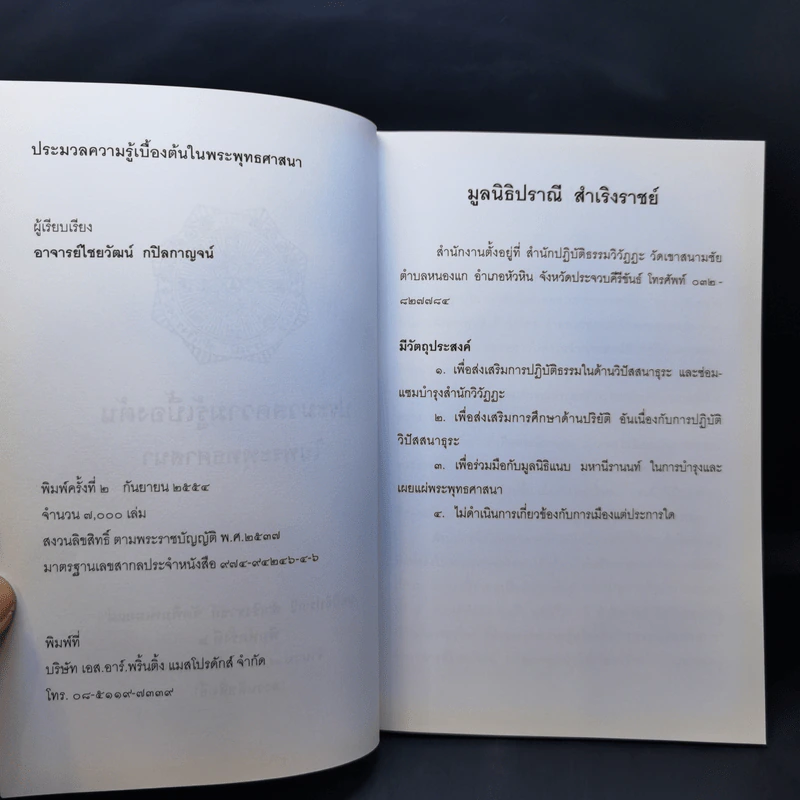 ประมวลความรู้เบื้องต้นในพระพุทธศาสนา
ผู้เรียบเรียง
อาจารย์ไชยวัฒน์ กปิลกาญจน์
พิมพ์ครั้งที่ ๒ กันยายน ๒๕๕๔
จำนวน ๗,๐๐๐ เล่ม
สงวนลิขสิทธิ์ ตามพระราชบัญญัติ พ.ศ.๒๕๓๗
มาตรฐานเลขสากลประจำหนังสือ ๙๗๔-๙๔๒๔๖-๔-๖
พิมพ์ที่
บริษัท เอส.อาร์.พริ้นติ้ง แมสโปรดักส์ จำกัด
โทร. ๐๘-๕๑๑๙-๗๓๓๙
มูลนิธิปราณี สำเริงราชย์
สำนักงานตั้งอยู่ที่ สำนักปฏิบัติธรรมวิวัฏฏะ วัดเขาสนามชัย
ตำบลหนองแก อำเภอหัวหิน จังหวัดประจวบคีรีขันธ์ โทรศัพท์ ๐๓๒-
๘๒๗๗๘๔
มีวัตถุประสงค์
๑. เพื่อส่งเสริมการปฏิบัติธรรมในด้านวิปัสสนาธุระ และซ่อม-
แซมบำรุงสำนักวิวัฏฏะ
๒. เพื่อส่งเสริมการศึกษาด้านปริยัติ อันเนื่องกับการปฏิบัติ
วิปัสสนาธุระ
๓. เพื่อร่วมมือกับมูลนิธิแนบ มหานีรานนท์ ในการบำรุงและ
เผยแผ่พระพุทธศาสนา
๔. ไม่ดำเนินการเกี่ยวข้องกับการเมืองแต่ประการใด